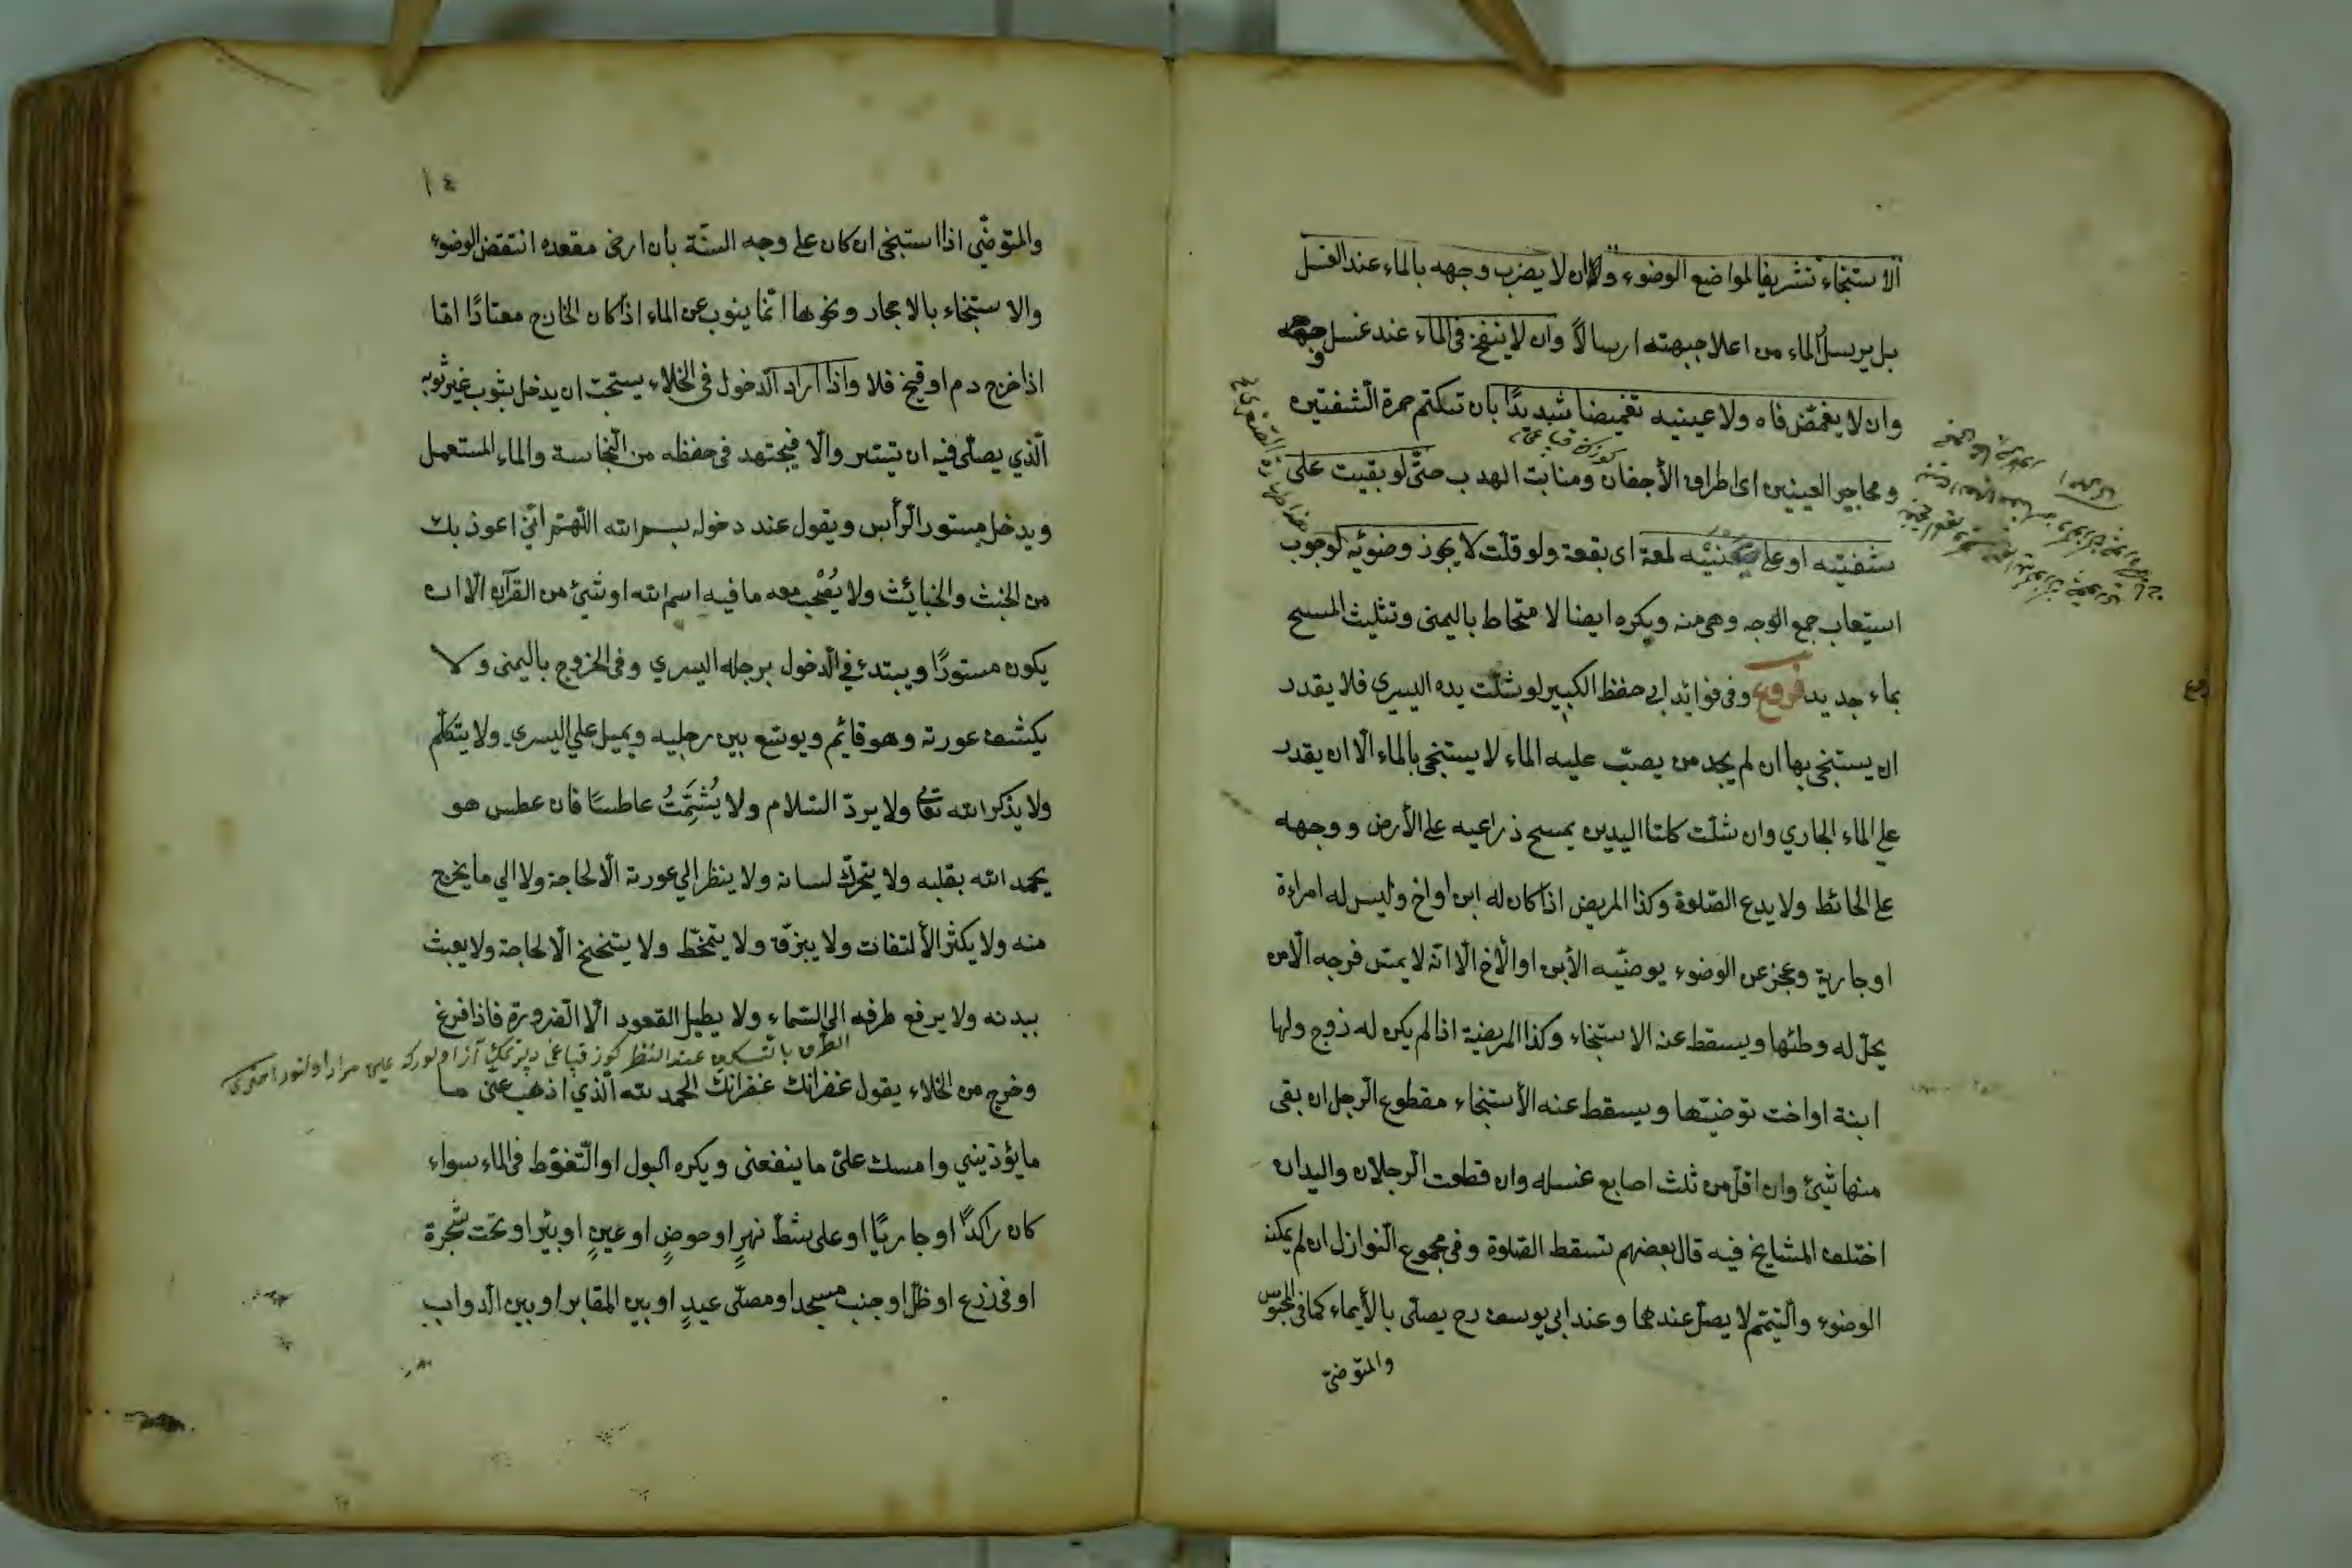 الاستنجاء تشريفا لمواضع الوضوء وان لا يضرب وجهه بالماء عند الغسل
بل يرسل الماء من اعلا جبهته ارسالاً وان لا ينفخ فى الماء عند غسل وجهه
وان لا يغمّض فاه ولا عينيه تغميضا شديدًا بان تنكتم حمرة الشفتين
ومحاجر العينين اى اطراف الأجفان ومنابت الهدب حتّى لو بقيت على
شفتيه او على لمعة اى بقعة ولو قلّت لا يجوز وضوئه لوجوب
استيعاب جمع الوجه وهى منه ويكره ايضا الامتخاط باليمنى وتثليث المسح
بماء جديد فروع وفى فوائد ابى حفظ الكبير لو شلّت يده اليسرى فلا يقدر
ان يستنجى بها ان لم يجد من يصبّ عليه الماء لا يستنجى بالماء الّا ان يقدر
على الماء الجاري وان شلّت كلتا اليدين يمسح ذراعيه على الأرض ووجهه
على الحائط ولا يدع الصّلوة وكذا المريض اذا كان له ابن او اخ وليس له امراءة
او جارية وعجز عن الوضوء يوضّيه الأبن او الأخ الّا انّه لا يمسّ فرجه الّا من
يحلّ له وطئها ويسقط عنه الاستنجاء وكذا المريضة اذا لم يكن له زوج ولها
ابنة او اخت توضيّها ويسقط عنه الأستنجاء مقطوع الرّجل ان بقى
منها شئ وان اقلّ من ثلث اصابع غسله وان قطعت الرّجلان واليدان
اختلف المشايخ فيه قال بعضهم تسقط الصّلوة وفى مجموع النّوازل ان لم يمكنه
الوضوء والتّيمّم لا يصلّ عندهما وعند ابى يوسف رح يصلّى بالأيماء كما فى المحبوس
والمتوضّئ
١٤
والمتوضّي اذا استنجى ان كان على وجه السنّة بأن ارخى مقعده انتقض الوضوء
والاستنجاء بالاحجار ونحوها انّما ينوب عن الماء اذا كان الخارج معتادًا امّا
اذا خرج دم او قيح فلا واذا اراد الدّخول فى الخلاء يستحبّ ان يدخل بثوب غير ثوبه
الّذي يصلّى فيه ان تيسّر والّا فيجتهد فى حفظه من النّجاسة والماء المستعمل
ويدخل مستور الرّأس ويقول عند دخوله بسم الله اللّهمّ انّي اعوذ بك
من الخبث والخبائث ولا يُصْحب معه ما فيه اسم الله او شئ من القرآن الّا ان
يكون مستورًا ويبتدئ في الدّخول برجله اليسري وفى الخروج باليمنى ولا
يكشف عورته وهو قائم ويوسّع بين رجليه ويميل علي اليسرى ولا يتكلّم
ولا يذكر الله تعالى ولا يردّ السّلام ولا يُشَمِّتُ عاطسًا فان عطس هو
يحمد الله بقلبه ولا يحرّك لسانه ولا ينظر الي عورته الّا لحاجة ولا الي ما يخرج
منه ولا يكثر الألتفات ولا يبزق ولا يتمخّط ولا يتنحنح الّا لحاجة ولا يعبث
ببدنه ولا يرفع طرفه الي السّماء ولا يطيل القعود الّا الضّرورة فاذا فرغ
الطّرف بالتّسكين عند النظر
وخرج من الخلاء يقول غفرانك غفرانك الحمد لله الّذي اذهب عنّى ما
ما يؤذيني وامسك علىّ ما ينفعنى ويكره البول او التّغوّط فى الماء سواء
كان راكدًا او جاريًا او على شطّ نهرٍ او حوضٍ او عينٍ او بئر او تحت شجرة
او فى زرع او ظلّ او جنب مسجد او مصلّى عيدٍ او بين المقابر او بين الدّواب